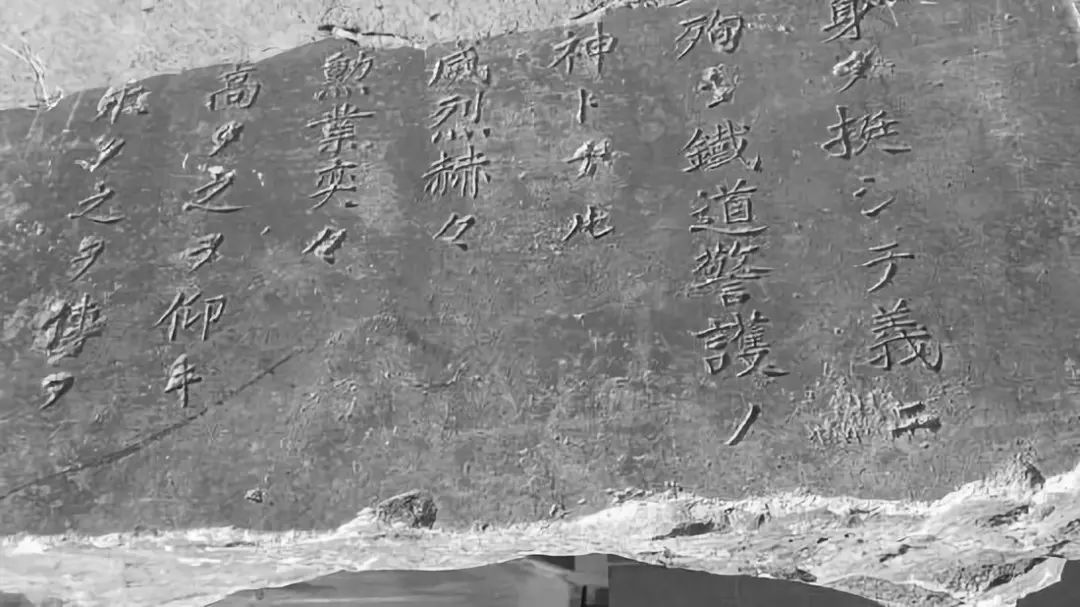 身ヲ挺シテ義ニ
殉ヲ鐵道警護ノ
神トナル
威烈赫々
勲業奕々
高ク之ヲ仰キ
ク之ヲ傳フ